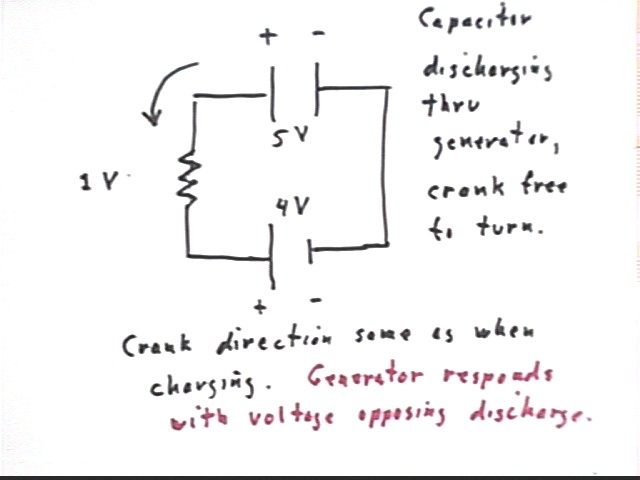 Capacitor
discharging
thru
generator,
crank free
to turn.
+ -
5 V
1 V
4 V
+ -
Crank direction same as when
charging. Generator responds
with voltage opposing discharge.